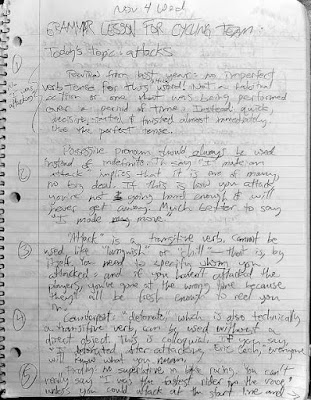 Nov 4 Wed
GRAMMAR LESSON FOR CYCLING TEAM:
Today's topic: attacks
①
Review from last year: no imperfect
verb tense for this word! Not a habitual
action or one that was being performed
over a period of time. Instead, quick,
decisive, started & finished almost immediately.
Use the perfect tense.
②
Possessive pronoun should always be used
instead of indefinite. To say "I make an
attack" implies that it is one of many,
no big deal. If this is how you attack,
you're not going hard enough & will
never get away. Much better to say
"I make my move."
③
"Attack" is a transitive verb, cannot be
used, like "languish" or "chill" - that is, by
itself. You need to specify whom you
attacked: and if you haven't attacked the
players, you've gone at the wrong time because
they'll all be fresh enough to reel you
in.
④
"detonate," which is also technically
a transitive verb, can be used without a
direct object. This is colloquial: if you say,
"I detonated after attacking Eric," everyone
will know what you mean.
⑤
no superlative in bike racing. You can't
really say "I was the fastest rider in the race"
unless you could attack at the start line and